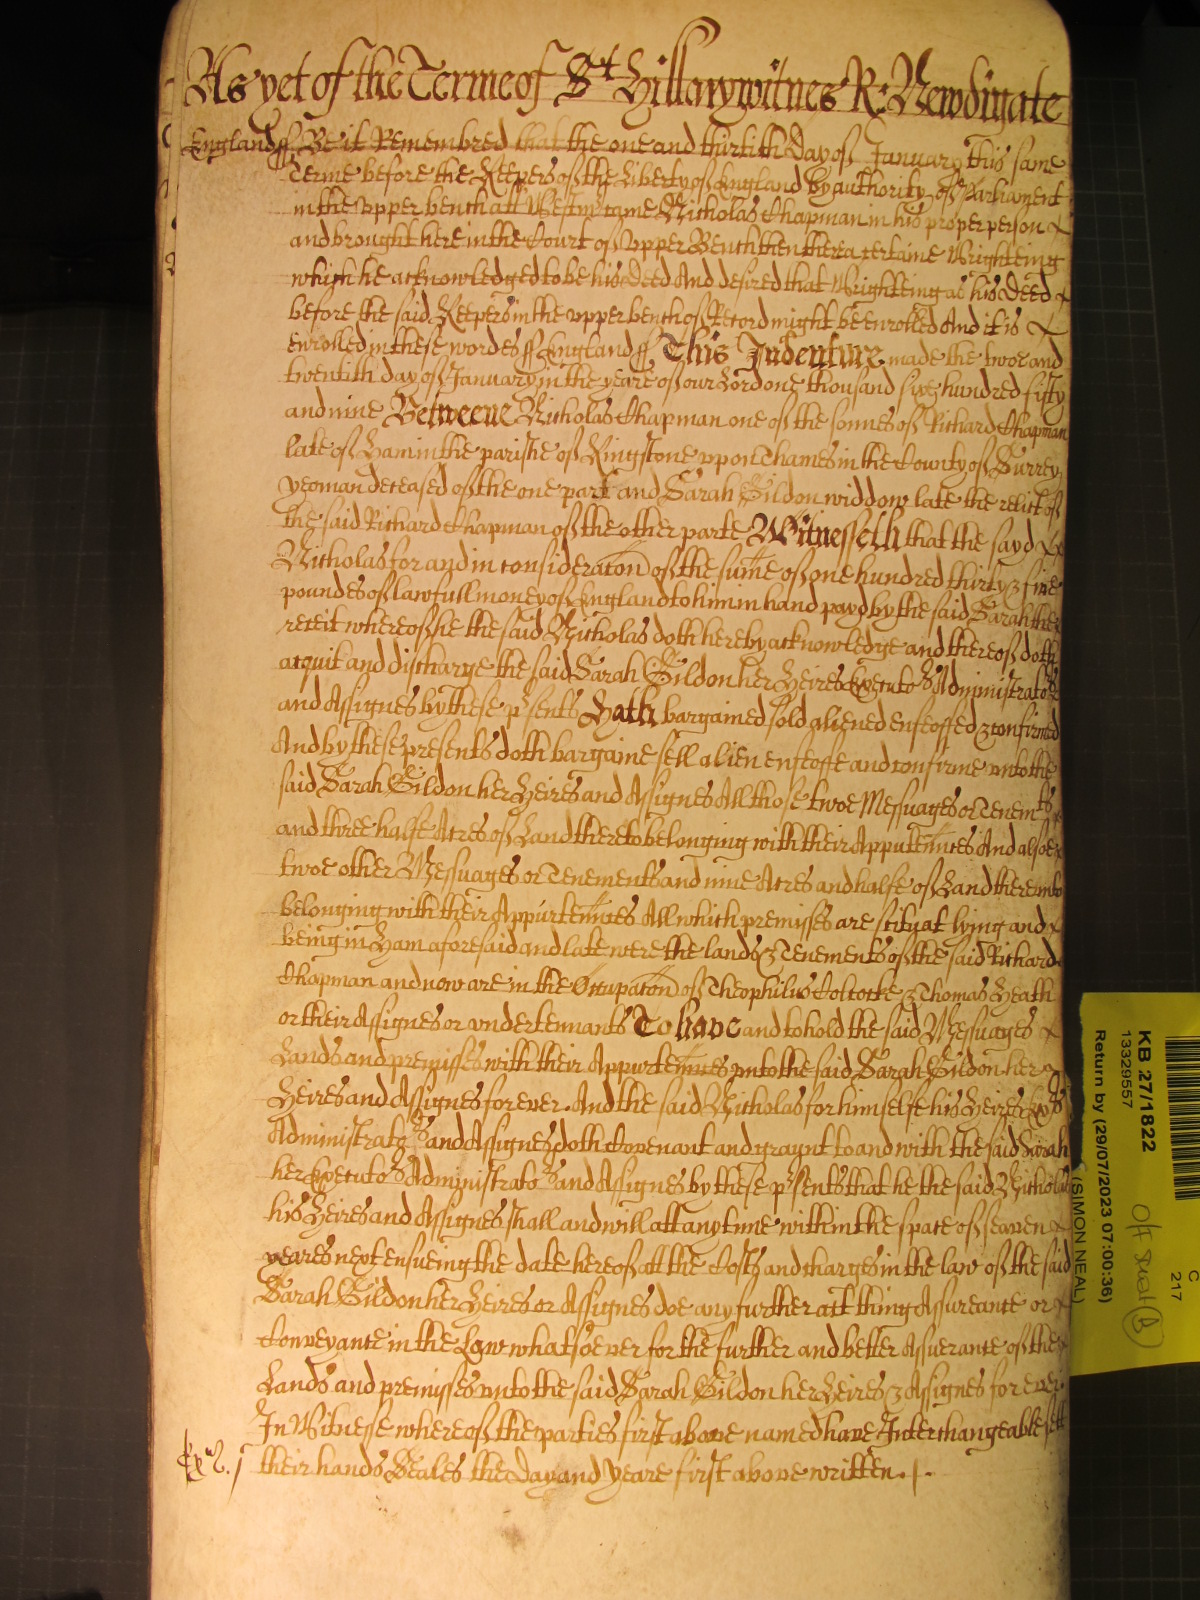 As yet of the Terme of St Hillary witnes R: Newdigate
England ss Be it Remembred that the one and thirtith Day of January this same
Terme before the Keepers of the Liberty of England by authority of Parliament
in the upper bench att Westmr came Nicholas Chapman in his proper person
and brought here in the Court of Upper Bench then there a certaine Wrighteing
which he acknowledged to be his Deed And desired that Wrighteing as his Deed
before the said Keepers in the upper bench of Record might be enrolled And it is
enrolled in these wordes ss England ss This Indenture made the twoe and
twentith day of January in the yeare of our Lord one thousand six hundred fifty
and nine Betweene Nicholas Chapman one of the sonnes of Richard Chapman
late of Ham in the parishe of Kingstone upon Thames in the County of Surrey
yeoman deceased of the one part and Sarah Gildon widdow late the relict of
the said Richard Chapman of the other parte Witnesseth that the sayd
Nicholas for and in consideracon of the sume of one hundred thirty & five
poundes of lawfull money of England to him in hand payd by the said Sarah the
receit whereof he the said Nicholas doth hereby acknowledge and thereof doth
acquit and discharge the said Sarah Gildon her Heires Executors Administrators
and Assignes by these psents Hath bargained sold aliened enfeoffed & confirmed
And by these presents doth bargaine sell alien enfeoffe and confirme unto the
said Sarah Gildon her Heires and Assignes All those twoe Messuages or Tenemts
and three halfe Acres of Land thereto belonging with their Appurtennces And alsoe
twoe other Messuages or Tenements and nine Acres and halfe of Land thereunto
belonging with their Appurtennces All which premisses are scituat lying and
being in Ham aforesaid and late were the lands & Tenements of the said Richard
Chapman and now are in the Occupacon of Theophilus Colcocke & Thomas Heath
or their Assignes or undertennants To have and to hold the said Messuages
Lands and premisses with their Appurtennces unto the said Sarah Gildon her
Heires and Assignes for ever. And the said Nicholas for himselfe his Heires Exrs
Administratrs and Assignes doth Covenant and graynt to and with the said Sarah
her Executors Administrators and Assignes by these psents that he the said Nicholas
his Heires and Assignes shall and will att any time within the space of seaven
yeares next ensueing the date hereof att the Costs and charges in the law of the said
Sarah Gildon her Heires or Assignes doe any further act thing Assureance or
Conveyance in the Law whatsoever for the further and better Assuerance of the
Lands and premisses unto the said Sarah Gildon her Heires & Assignes for ever.
In Witnesse whereof the parties first above named have Interchangeable sett
Exr. their hands Seales the Day and Yeare first above written.
KB 27/1822
13329557
Return by (29/07/2023 07:00:36)
(SIMON NEAL)
C
217